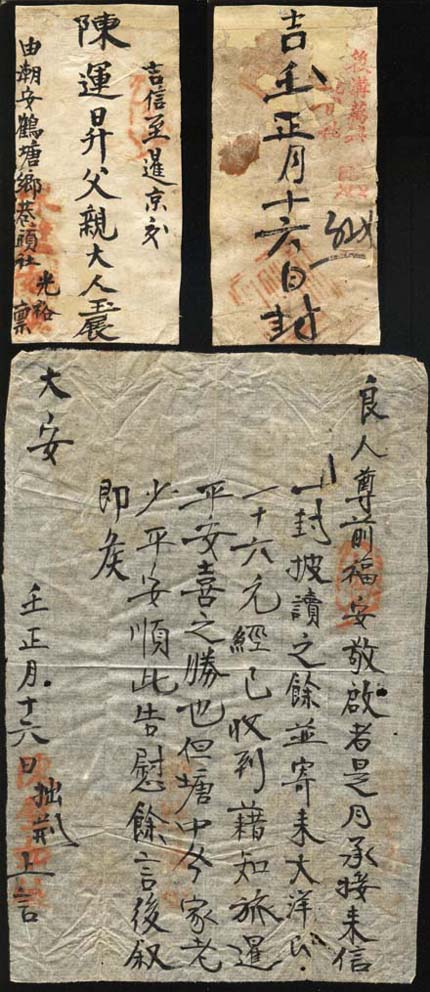 吉信至暹京交
陳運昇父親大人玉展
由潮安鶴塘鄉巷頭社 光裕 稟
吉壬正月十六日封
良人尊前福安敬啟者是月承接來信
一封披讀之餘並寄來大洋艮
一十六元經已收到藉知旅暹
平安喜之勝也但塘中合家老
少平安順此告慰餘言後叙
即候
大安
壬正月十六日 拙荊上言